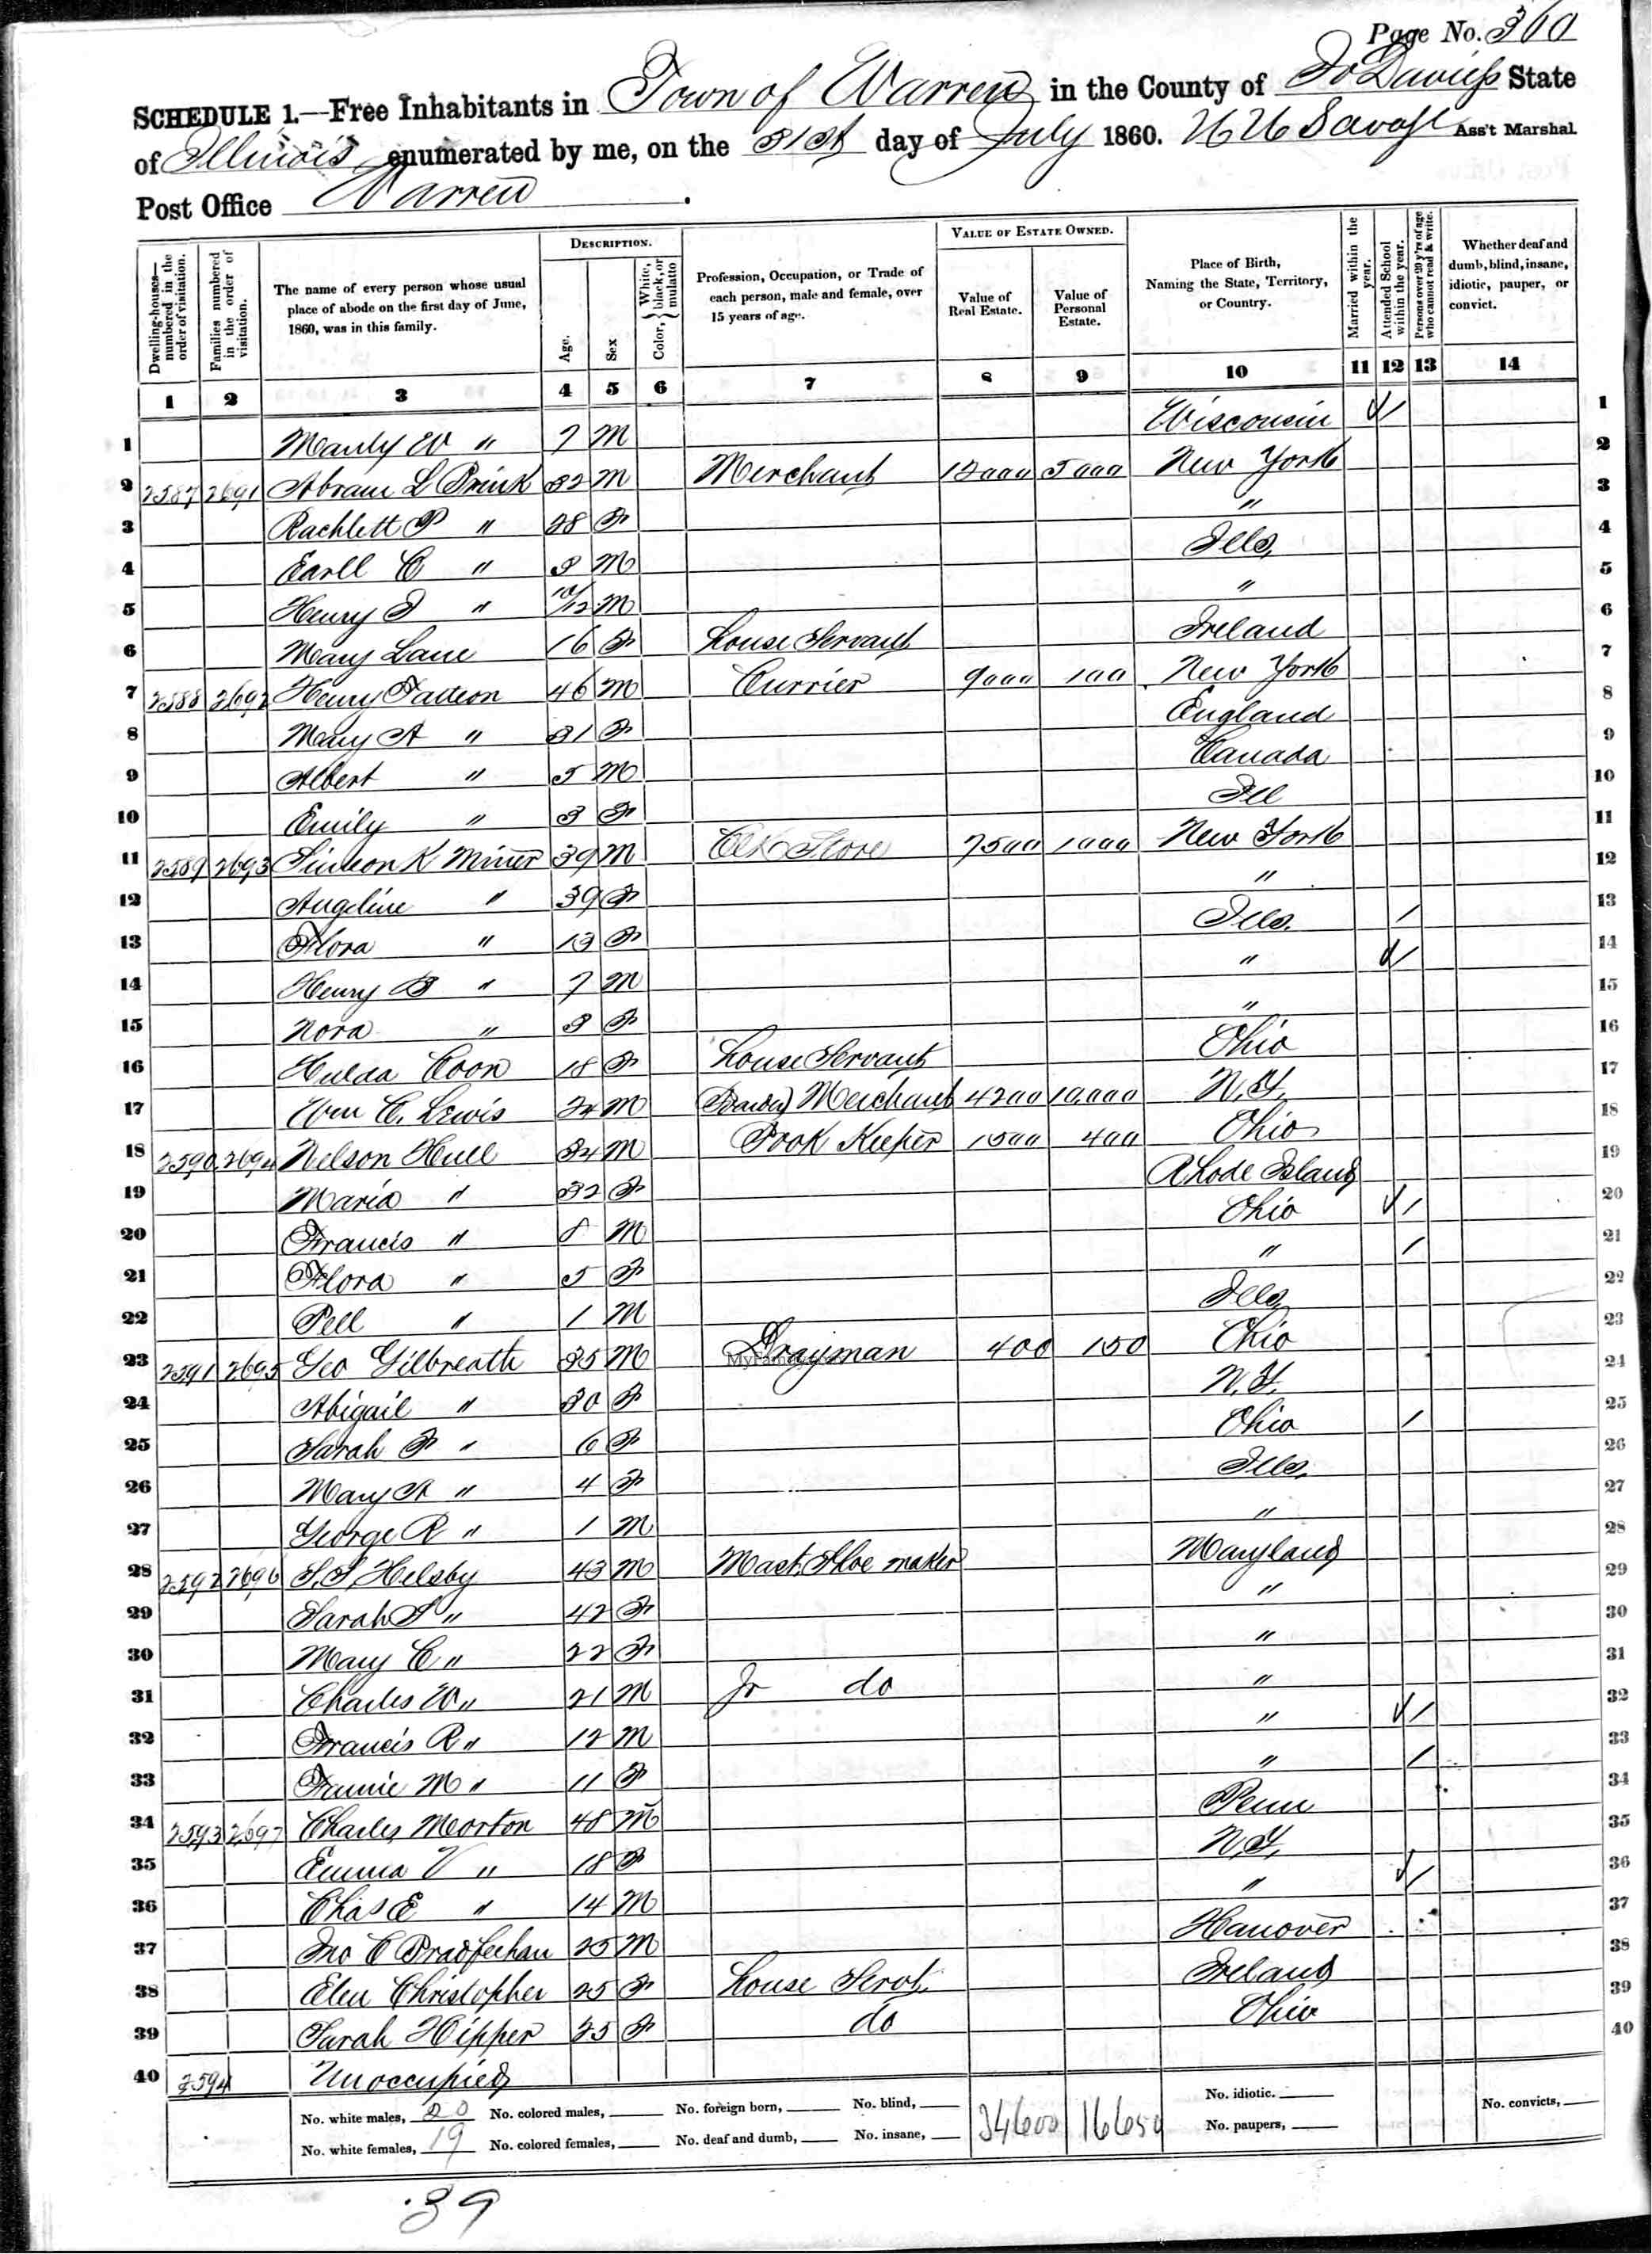 Page No. 360
SCHEDULE 1.—Free Inhabitants in Town of Warren in the County of Jo Daviess State
of Illinois enumerated by me, on the 31st day of July 1860. Savage Ass't Marshal
Post Office Warren.
Dwelling-houses—numbered in the order of visitation. Families numbered in the order of visitation. The name of every person whose usual place of abode on the first day of June, 1860, was in this family. Description. Age. Sex Color, White, black, or mulatto Profession, Occupation, or Trade of each person, male and female, over 15 years of age. Value of Estate Owned. Value of Real Estate. Value of Personal Estate. Place of Birth, Naming the State, Territory, or Country. Married within the year. Attended School within the year. Persons over 20 y'rs of age who cannot read & write. Whether deaf and dumb, blind, insane, idiotic, pauper, or convict.
1 2 3 4 5 6 7 8 9 10 11 12 13 14
1 Manly W " 7 M Wisconsin / 1
2 2587 2691 Abram L Brink 32 M Merchant 12000 5000 New York 2
3 Rachlett P " 28 F " 3
4 Earll C " 3 M Ills 4
5 Henry " 10/12 M " 5
6 Mary Lane 16 F House Servant Ireland 6
7 2588 2692 Henry 46 M Currier 9000 100 New York 7
8 Mary A " 31 F England 8
9 Albert " 5 M Canada 9
10 Emily " 3 F Ill 10
11 2589 2693 Simeon K Miner 39 M Clk Store 7500 1000 New York 11
12 Angeline " 39 F " 12
13 Flora " 13 F Ills. / 13
14 Henry B " 7 M " / 14
15 Nora " 3 F " 15
16 Hulda Coon 18 F House Servant Ohio 16
17 Wm C. Lewis 24 M Merchant 4200 10,000 N.Y. 17
18 2590 2694 Nelson Hull 34 M Book Keeper 1500 400 Ohio 18
19 Maria " 32 F Rhode Island 19
20 Francis " 8 M Ohio / / 20
21 Flora " 5 F " / 21
22 Bell " 1 M Ills 22
23 2591 2695 Geo Gilbreath 35 M Drayman 400 150 Ohio 23
24 Abigail " 30 F N.Y. 24
25 Sarah F " 6 F Ohio / 25
26 Mary A " 4 F Ills. 26
27 George R " 1 M " 27
28 2592 2696 S. S. Helsby 43 M Mast. Shoe maker Maryland 28
29 Sarah S " 42 F " 29
30 Mary C " 22 F " 30
31 Charles W " 21 M Jr do " 31
32 Francis R " 12 M " / / 32
33 Fannie M " 11 F " / 33
34 2593 2697 Charles Morton 48 M Penn 34
35 Emma V " 18 F N.Y. 35
36 Chas E " 14 M " / 36
37 Jno C 25 M Hanover 37
38 Elen Christopher 25 F House Servt. Ireland 38
39 Sarah Hipper 25 F do Ohio 39
40 2594 Unoccupied 40
No. white males, 20 No. colored males, No. foreign born, No. blind, 34600 16650 No. idiotic. No. convicts,
No. white females, 19 No. colored females, No. deaf and dumb, No. insane, No. paupers,
39